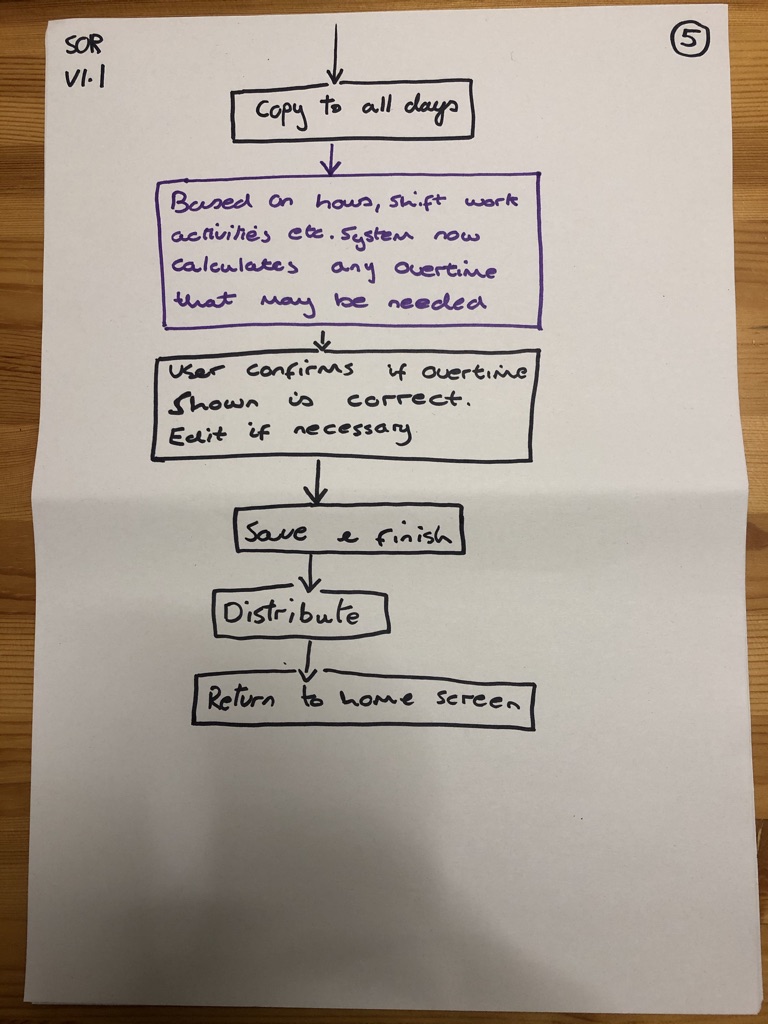 SOR
V1.1
5
Copy to all days
Based on hours, shift work
activities etc. System now
calculates any overtime
that may be needed
User confirms if overtime
shown is correct.
Edit if necessary
Save & finish
Distribute
Return to home screen